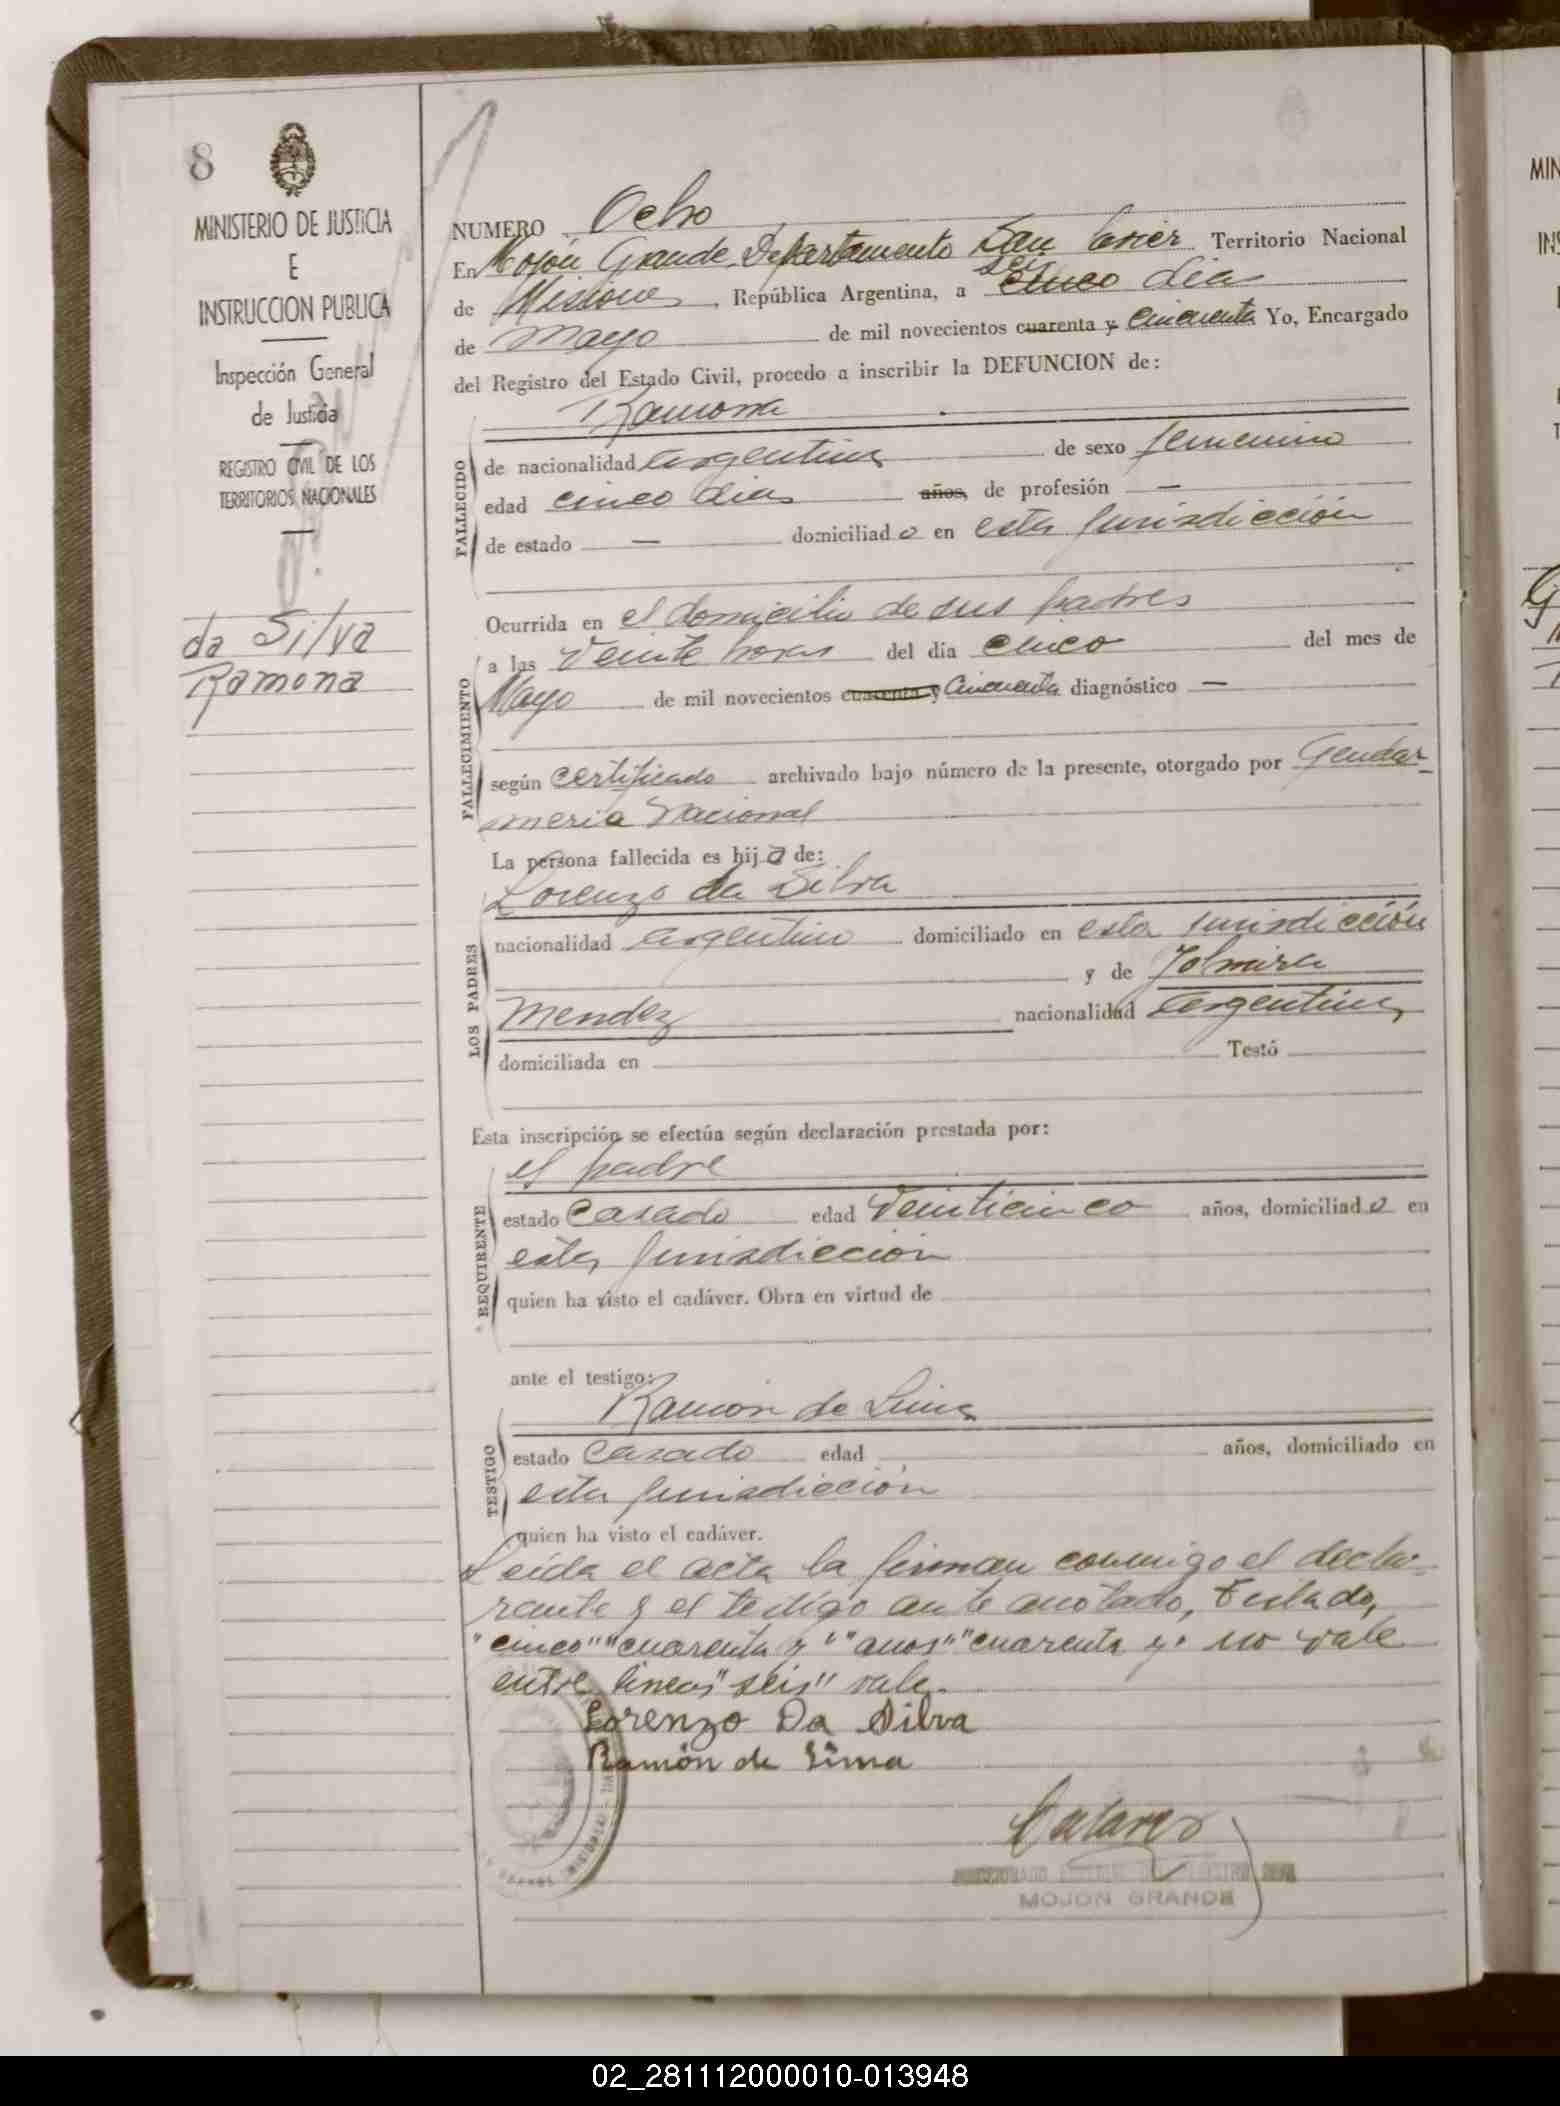 8
MINISTERIO DE JUSTICIA
E
INSTRUCCION PUBLICA
Inspección General
de Justicia
REGISTRO CIVIL DE LOS
TERRITORIOS NACIONALES
da Silva
Ramona
NUMERO Ocho
En Mojón Grande Departamento San Javier Territorio Nacional
seis
de Misiones, República Argentina, a cinco dias
de Mayo de mil novecientos cuarenta y cincuenta Yo, Encargado
del Registro del Estado Civil, procedo a inscribir la DEFUNCION de:
Ramona
FALLECIDO
de nacionalidad argentina de sexo femenino
edad cinco dias años, de profesión —
de estado — domiciliado en esta jurisdicción
FALLECIMIENTO
Ocurrida en el domicilio de sus padres
a las veinte horas del día cinco del mes de
Mayo de mil novecientos cuarenta y cincuenta diagnóstico —
según certificado archivado bajo número de la presente, otorgado por Gendar-
meria Nacional
La persona fallecida es hija de:
LOS PADRES
Lorenzo da Silva
nacionalidad argentino domiciliado en esta jurisdicción
y de Jolmira
Mendez nacionalidad argentina
domiciliada en Testó
Esta inscripción se efectúa según declaración prestada por:
REQUIRENTE
el padre
estado casado edad veinticinco años, domiciliado en
esta jurisdicción
quien ha visto el cadáver. Obra en virtud de
ante el testigo:
TESTIGO
Ramón de Lima
estado casado edad años, domiciliado en
esta jurisdicción
quien ha visto el cadáver.
Leída el acta la firman conmigo el decla-
rante y el testigo ante anotado, Testado,
"cinco" "cuarenta y" "anos" "cuarenta y" no vale
entre lineas "seis" vale.
Lorenzo Da Silva
Ramón de Lima
MOJON GRANDE
02_281112000010-013948